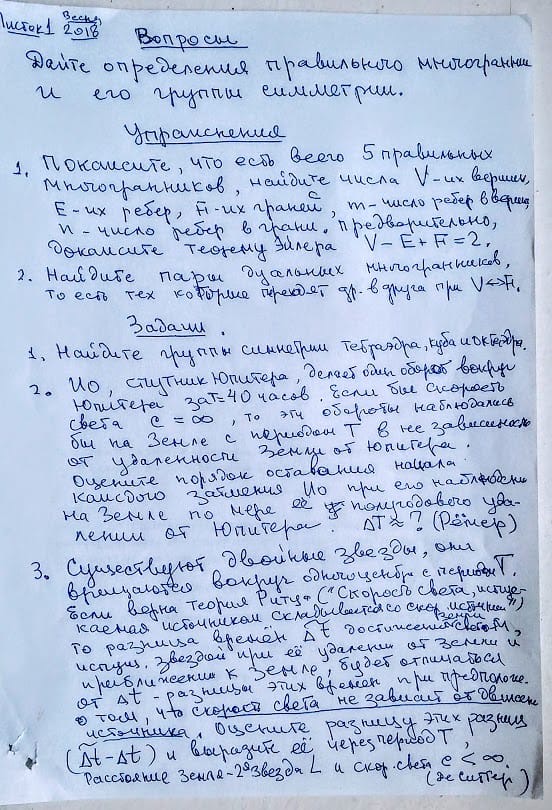 Листок 1 Весна 2018
Вопросы
Дайте определения правильного многогранни
и его группы симметрии.
Упражнения
1. Покажите, что есть всего 5 правильных
многогранников, найдите числа V-их вершин,
E-их ребер, F-их граней, m-число ребер в верш
n-число ребер в грани. Предварительно,
докажите теорему Эйлера V-E+F=2.
2. Найдите пары дуальных многогранников,
то есть тех которые переходят др. в друга при V↔F.
Задачи.
1. Найдите группы симметрии тетраэдра, куба и октаэдра.
2. Ио, спутник Юпитера, делает один оборот вокруг
Юпитера за T=40 часов. Если бы скорость
света c=∞, то эти обороты наблюдались
бы на Земле с периодом T в независимо
от удаленности Земли от Юпитера.
Оцените порядок отставания начала
каждого затмения Ио при его наблюдени
на Земле по мере её полугодового уда-
лении от Юпитера. ΔT≈? (Рёмер)
3. Существуют двойные звезды, они
вращаются вокруг одного центра с периодом T.
Если верна теория Ритца ("Скорость света, испус-
каемая источником складывается со скор. источника")
то разница времен Δ̃t достижения Земли светом,
испущ. звездой при её удалении от Земли и
приближении к Земле, будет отличаться
от Δt - разницы этих времен при предположе-
о том, что скорость света не зависит от движен
источника. Оцените разницу этих разниц
(Δ̃t-Δt) и выразите её через период T,
Расстояние Земля-2ая звезда L и скор. света c<∞.
(де Ситтер)